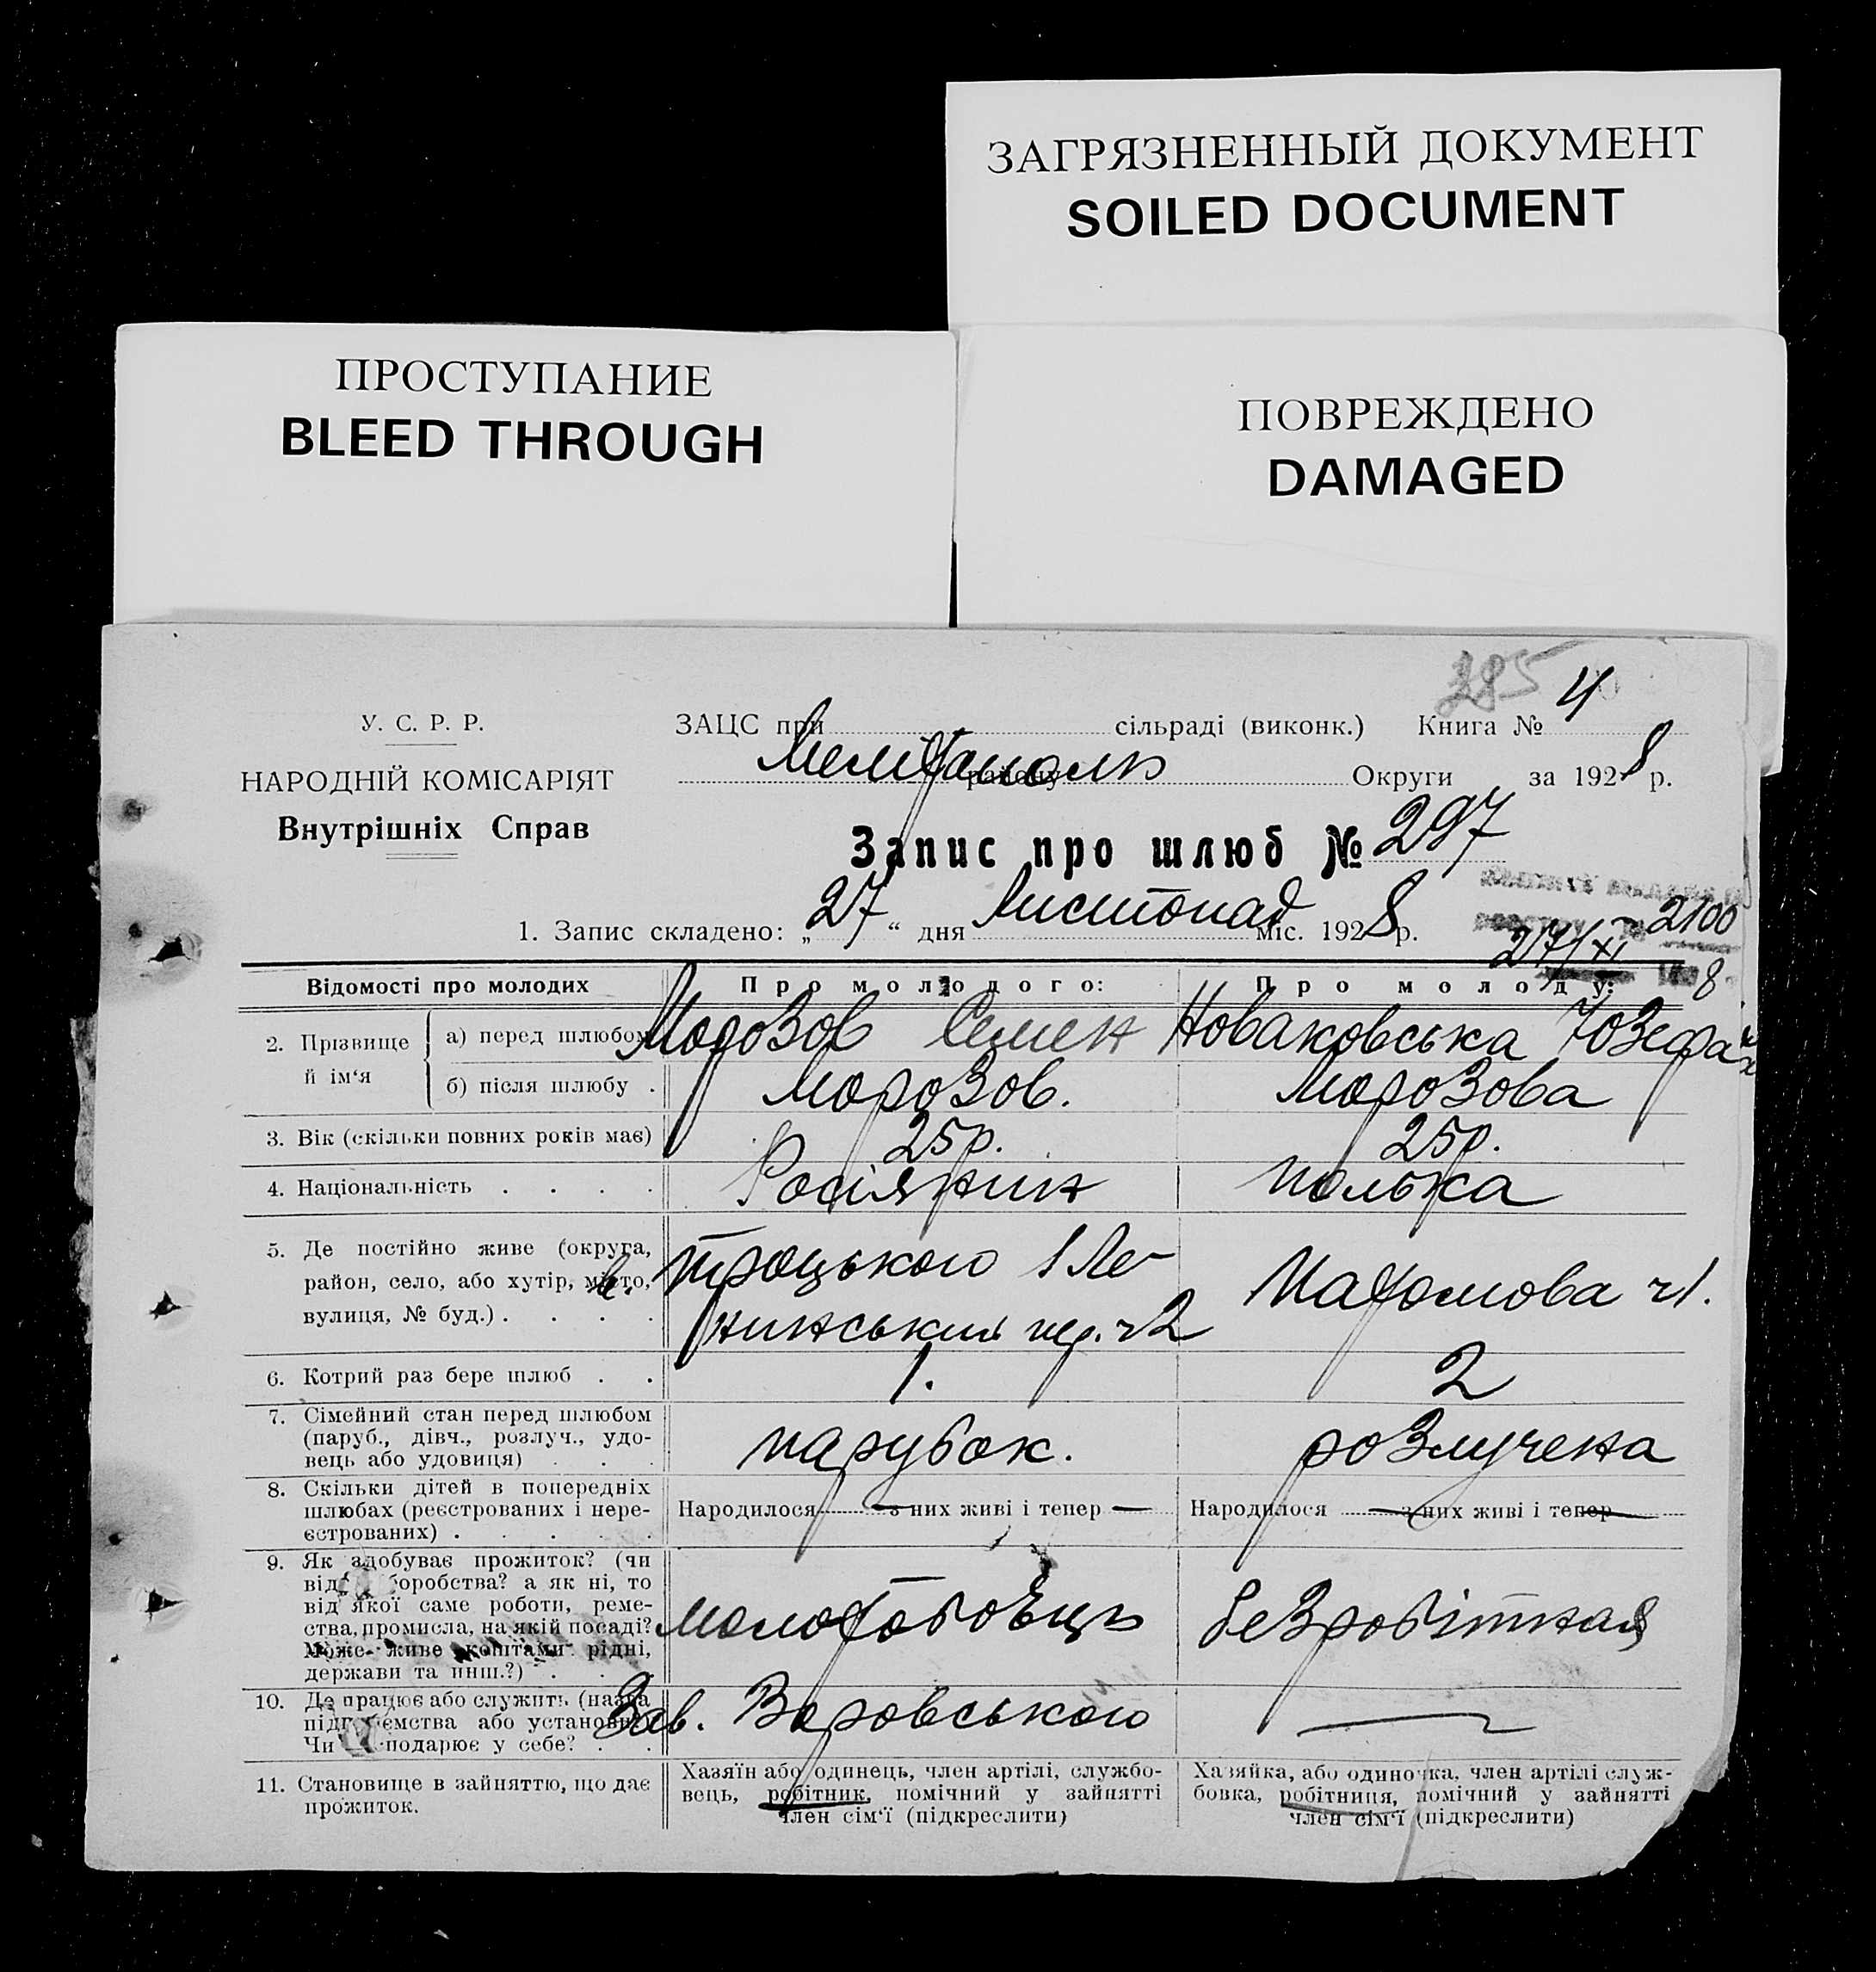 ЗАГРЯЗНЕННЫЙ ДОКУМЕНТ
SOILED DOCUMENT
ПРОСТУПАНИЕ
BLEED THROUGH
ПОВРЕЖДЕНО
DAMAGED
385
У. С. Р. Р.
НАРОДНІЙ КОМІСАРІЯТ
Внутрішніх Справ
ЗАЦС при сільраді (виконк.) Книга № 4
Мелітополь району Округи за 1928 р.
Запис про шлюб № 297
1. Запис складено: „27“ дня Листопад міс. 1928 р.
2100
27/XI 8
Відомості про молодих Про молодого: Про молоду:
2. Прізвище й ім‘я
а) перед шлюбом Морозов Семен Новаковська Юзефа
б) після шлюбу . Морозов. Морозова
3. Вік (скільки повних років має) 25р. 25р.
4. Національність . . . . Росіянин полька
5. Де постійно живе (округа,
район, село, або хутір, місто,
вулиця, № буд.) . . . .
в. Троцького 1 Ле-
нинський пер. ч 2
ч 1.
6. Котрий раз бере шлюб . . 1. 2
7. Сімейний стан перед шлюбом
(паруб., дівч., розлуч., удо-
вець або удовиця) . . .
парубок. розлучена
8. Скільки дітей в попередніх
шлюбах (реєстрованих і нере-
єстрованих) . . . . .
Народилося — з них живі і тепер —
Народилося — з них живі і тепер —
9. Як здобуває прожиток? (чи
від боробства? а як ні, то
від якої саме роботи, реме-
ства, промисла, на якій посаді?
Може живе коштами рідні,
держави та инш.?) . . .
молотобоєць безробітная
10. Де працює або служить (назва
підприємства або установи)
Чи господарює у себе? . .
Зав. Воровського —
11. Становище в зайняттю, що дає
прожиток.
Хазяїн або одинець, член артілі, службо-
вець, робітник, помічний у зайнятті
член сім‘ї (підкреслити)
Хазяйка, або одиночка, член артілі служ-
бовка, робітниця, помічний у зайнятті
член сім‘ї (підкреслити)